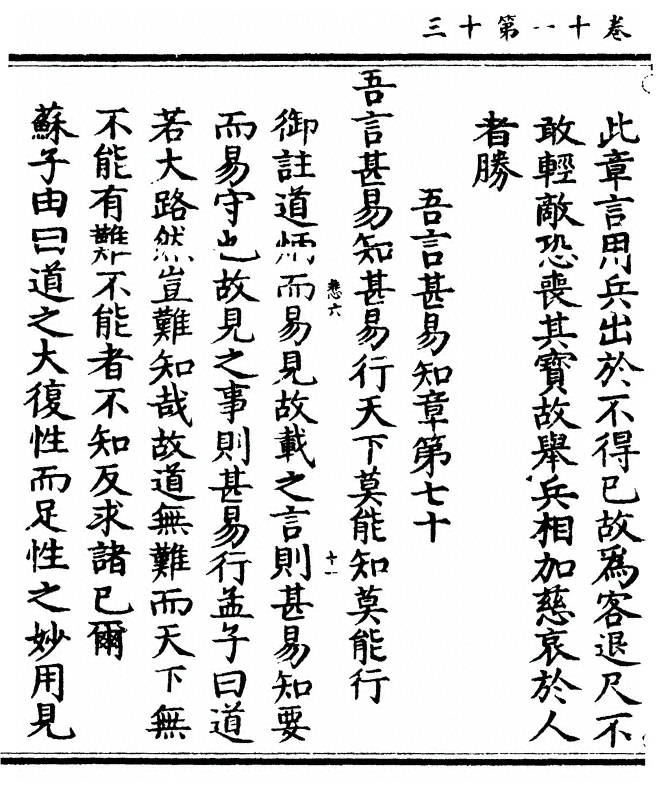 卷十一第十三
此章言用兵出於不得已故爲客退尺不
敢輕敵恐喪其寶故舉兵相加慈哀於人
者勝
吾言甚易知章第七十
吾言甚易知甚易行天下莫能知莫能行
御註道炳而易見故載之言則甚易知要
而易守也故見之事則甚易行孟子曰道
若大路然豈難知哉故道無難而天下無
不能有難不能者不知反求諸已爾
蘇子由曰道之大復性而足性之妙用見
十一